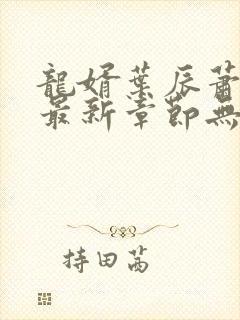 龍婿葉辰蕭
最新章節無
持田茜